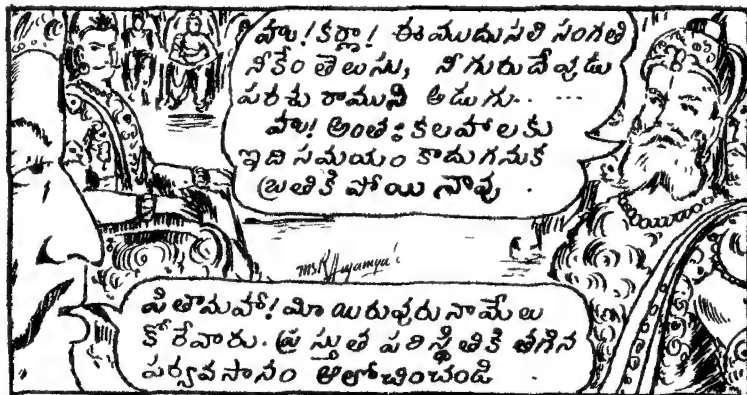 హః! కర్ణా! ఈ ముదుసలి సంగతి
నీకేం తెలుసు, నీ గురుదేవుడు
పరశు రాముని అడుగు.. ...
హః! అంతః కలహాలకు
ఇది సమయం కాదు గనుక
బ్రతికి పోయి నావు .
పితామహా! మీ యిరువురు నా మేలు
కోరేవారు. ప్రస్తుత పరిస్థితికి తగిన
పర్యవసానం ఆలోచించండి .